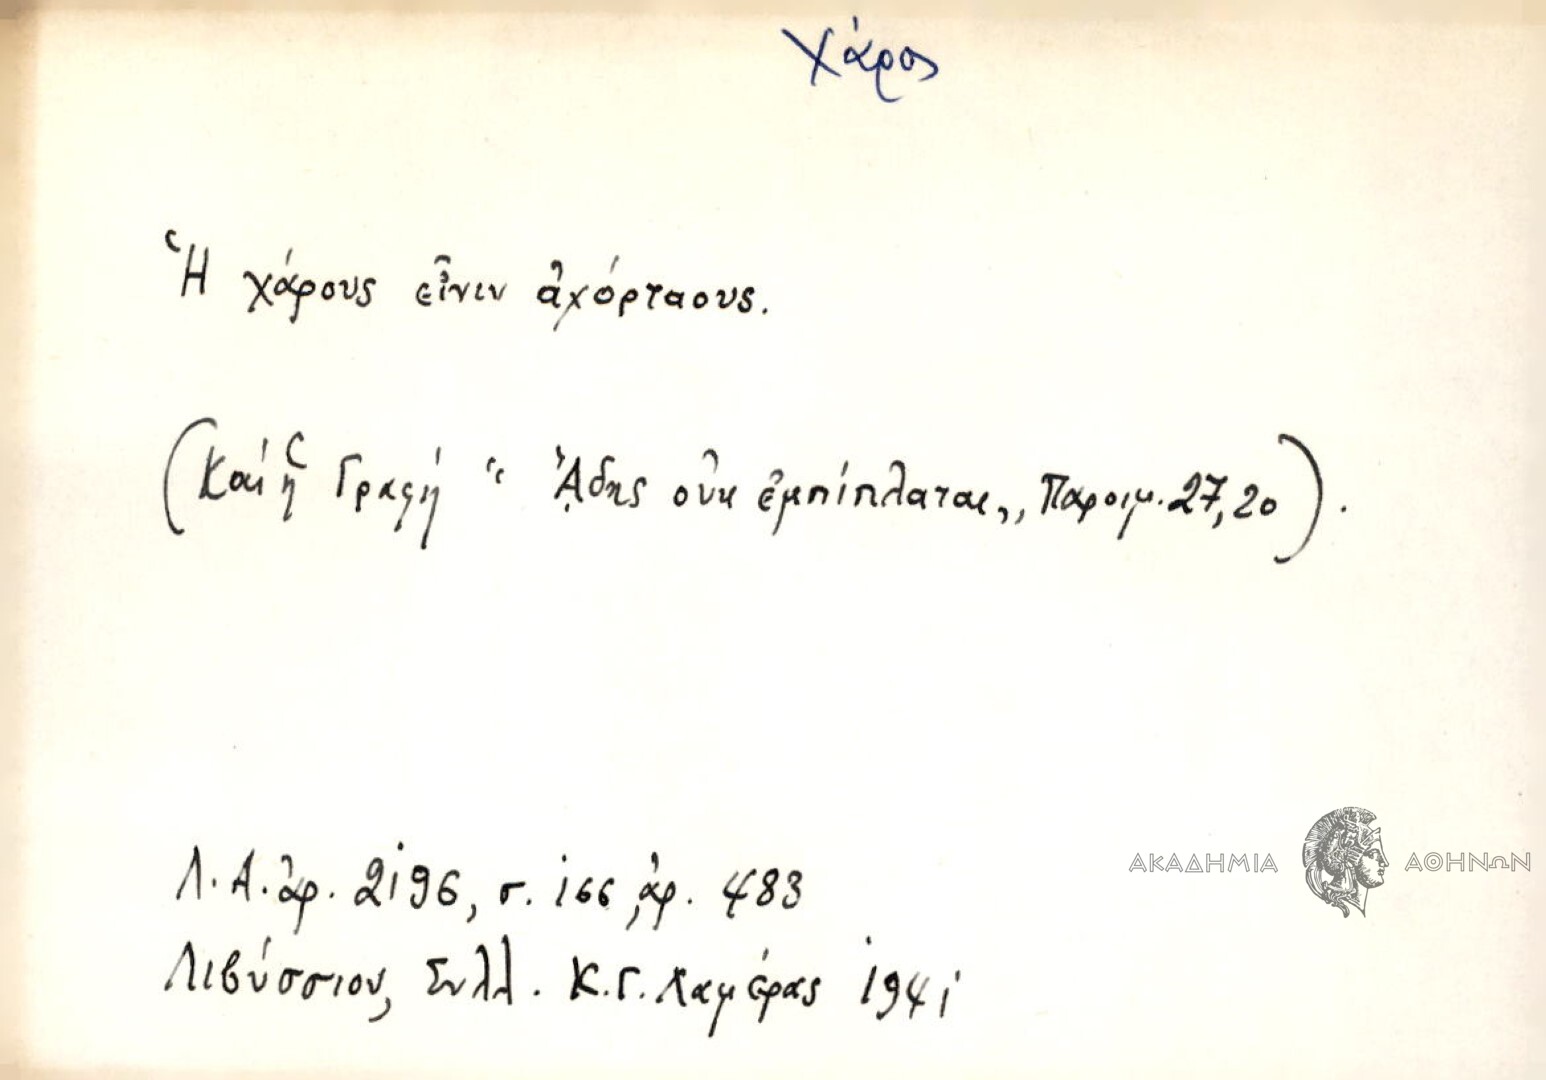 Χάρος
Ἡ χάρους εἶνιν ἀχόρταους.
(Καί ἡ Γραφή “ ᾍδης οὐκ ἐμπίπλαται,, Παροιμ. 27,20).
Λ.Α. ἀρ. 2196, σ. 166, ἀρ. 483
Λιβύσσιον, Συλλ. Κ.Γ. Λαμέρας 1941
ΑΚΑΔΗΜΙΑ ΑΘΗΝΩΝ